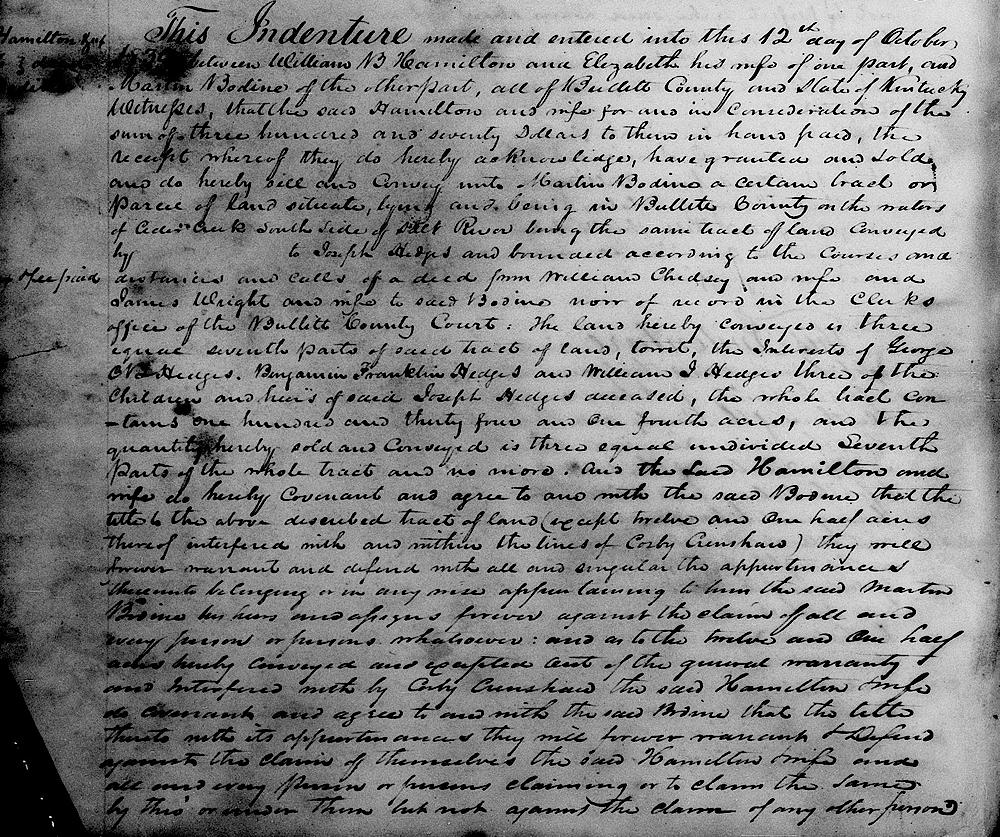 Hamilton &c
This Indenture made and entered into this 12th day of October
between William B Hamilton and Elizabeth his wife of one part, and
Martin Bodine of the other part, all of Bullitt County and State of Kentucky
Witnesses, that the said Hamilton and wife for and in Consideration of the
sum of three hundred and seventy Dollars to them in hand paid, the
receipt whereof they do hereby acknowledge, have granted and sold
and do hereby sell and Convey unto Martin Bodine a certain tract or
parcel of land situate, lying and being in Bullitt County on the waters
of Ceder Creek South Side of Salt River being the same tract of land Conveyed
by to Joseph Hedges and bounded according to the Courses and
fee paid
distances and calls of a deed from William Chidsey and wife and
James Wright and wife to said Bodine now of record in the Clerks
office of the Bullitt County Court: The land hereby conveyed is three
equal seventh parts of said tract of land, towit, the Interests of George
Hedges. Benjamin Franklin Hedges and William J Hedges three of the
Children and heirs of said Joseph Hedges deceased, the whole tract con
-tains one hundred and thirty four and one fourth acres, and the
quantity hereby sold and Conveyed is three equal undivided Seventh
parts of the whole tract and no more. And the Said Hamilton and
wife do hereby Covenant and agree to and with the said Bodine that the
title to the above described tract of land (except twelve and One half acres
thereof interfered with and within the lines of Cosby Crenshaw) they will
forever warrant and defend with all and singular the appurtenances
thereunto belonging or in any wise appertaining to him the said Martin
Bodine his heirs and assigns forever against the claim of all and
every person or persons whatsoever: and as to the twelve and One half
acres hereby conveyed and excepted out of the general warranty
and Interfered with by Cosby Crenshaw the said Hamilton & wife
do covenant and agree to and with the said Bodine that the title
thereto with its appurtenances they will forever warrant & Defend
against the claim of themselves the said Hamilton & wife and
all and every person or persons claiming or to claim the same
by this or under them but not against the claim of any other person